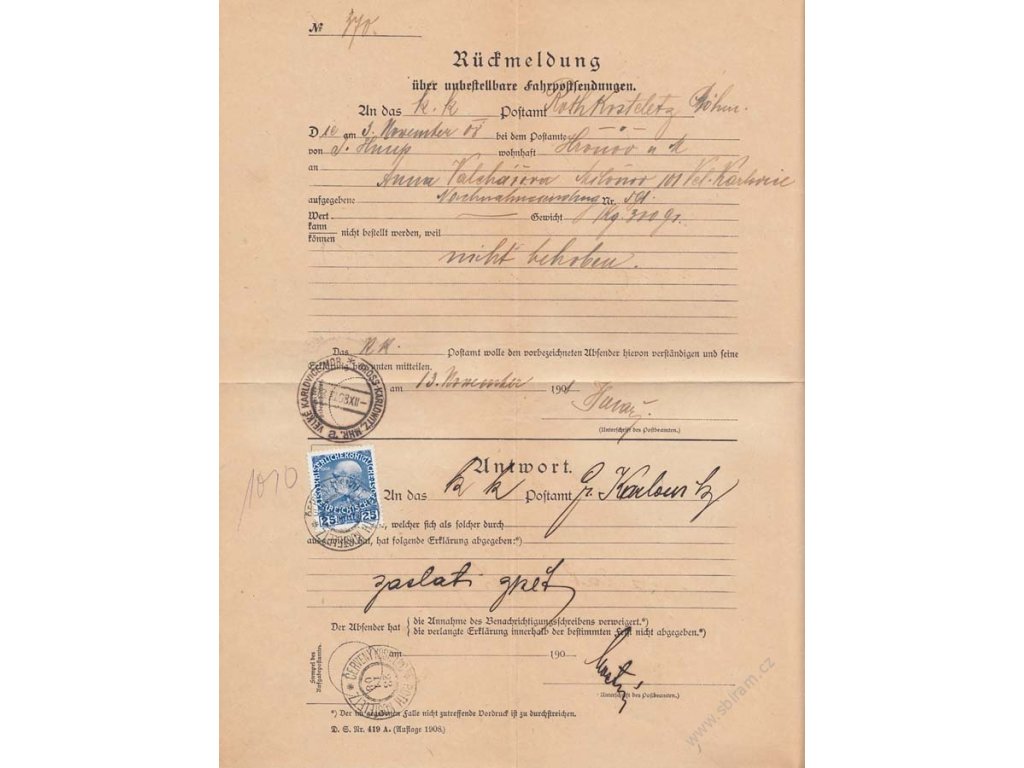 № 370.
Rückmeldung
über unbestellbare Fahrpostsendungen.
An das k. k. Postamt Rothkosteletz Böhm.
Die am 3. November 08 bei dem Postamte
von J. wohnhaft Hronov
an Anna 101 Vel. Karlovice
aufgegebene Nachnahmesendung Nr. 591
Wert — Gewicht Kg. 310 gr.
kann
können nicht bestellt werden, weil
nicht behoben.
Das k. k. Postamt wolle den vorbezeichneten Absender hievon verständigen und seine
mitteilen.
VELKÉ KARLOVICE MOR. * GROSS-KARLOWITZ, MHR. *
am 13. November 190
(Unterschrift des Postbeamten.)
1010
Antwort.
KAISERLICHE KÖNIGLICHE
25 25
An das k k Postamt G. Karlowitz
, welcher sich als solcher durch
ausgewiesen hat, hat folgende Erklärung abgegeben:*)
zaslati zpět
Der Absender hat { die Annahme des Benachrichtigungsschreibens verweigert.*)
die verlangte Erklärung innerhalb der bestimmten Frist nicht abgegeben.*)
Stempel des
Aufgabepostamtes.
am 190
ČERVENÝ KOSTELEC * ROTH KOSTELETZ
Unterschrift des Postbeamten.)
*) Der im gegebenen Falle nicht zutreffende Vordruck ist zu durchstreichen.
D. S. Nr. 419 A. (Auflage 1908.)
www.sbiram.cz